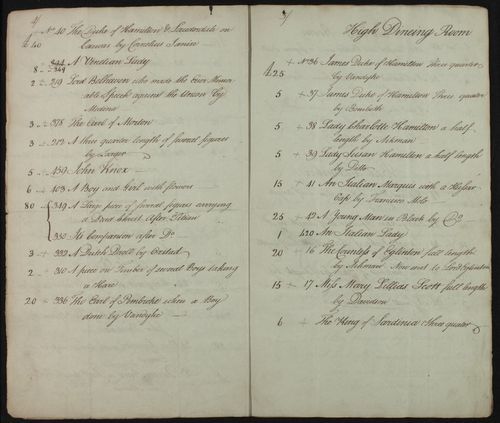 No 40 The Duke of Hamilton & Lauderdale on
40 Canvas by Cornelius Jansen
344 A Venetian Lady
8 349
2 219 Lord Belhaven who made the ever Memor
able Speech against the Union by
Medina
3 278 The Earl of Morton
3 212 A three quarter length of several figures
by
5 439 John Knox
6 403 A Boy and Girl with flowers
80 349 A Large piece of several figures carrying
a Dead Christ After Titian
350 Its Companion after Do
3 332 A Dutch Droll by
2 310 A piece on Timber of several Boys taking
a Hare
20 336 The Earl of Pembroke when a Boy
done by Vandyke
3/
High Dineing Room
No 36 James Duke of Hamilton three quarter
25 by Vandyke
5 37 James Duke of Hamilton Three quater
by
5 38 Lady Charlotte Hamilton a half
length by Aikman
5 39 Lady Susan Hamilton a half length
by Ditto
15 41 An Italian Marquis with a Highes
Cap by Francisco Mola
25 42 A Young Man in Black by Do
1 420 An Italian Lady
20 16 The Countess of Eglinton full length
by Aikman Now sent to Lord Eglinton
15 17 Miss Mary Lillias Scott full length
by Davidson
6 The King of Sardinia three quater